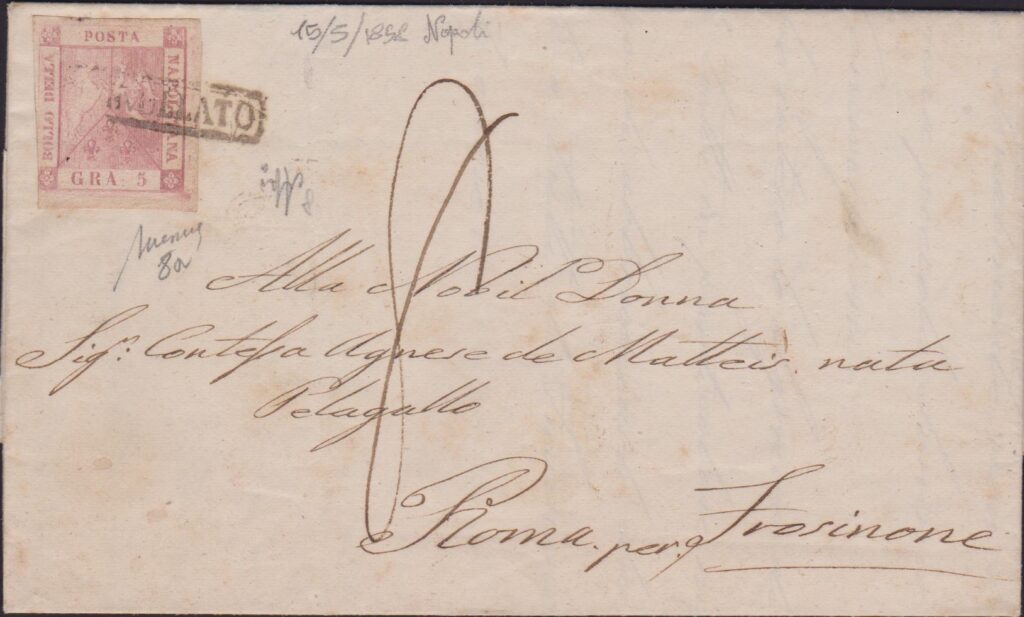 15/5/1858 Napoli
POSTA
BOLLO DELLA
NAPOLETANA
GRA 5
ANNULLATO
8a
Alla Nobil Donna
Sig.ª Contessa Agnese de Matteis nata
Pelagallo
Roma. per. Frosinone